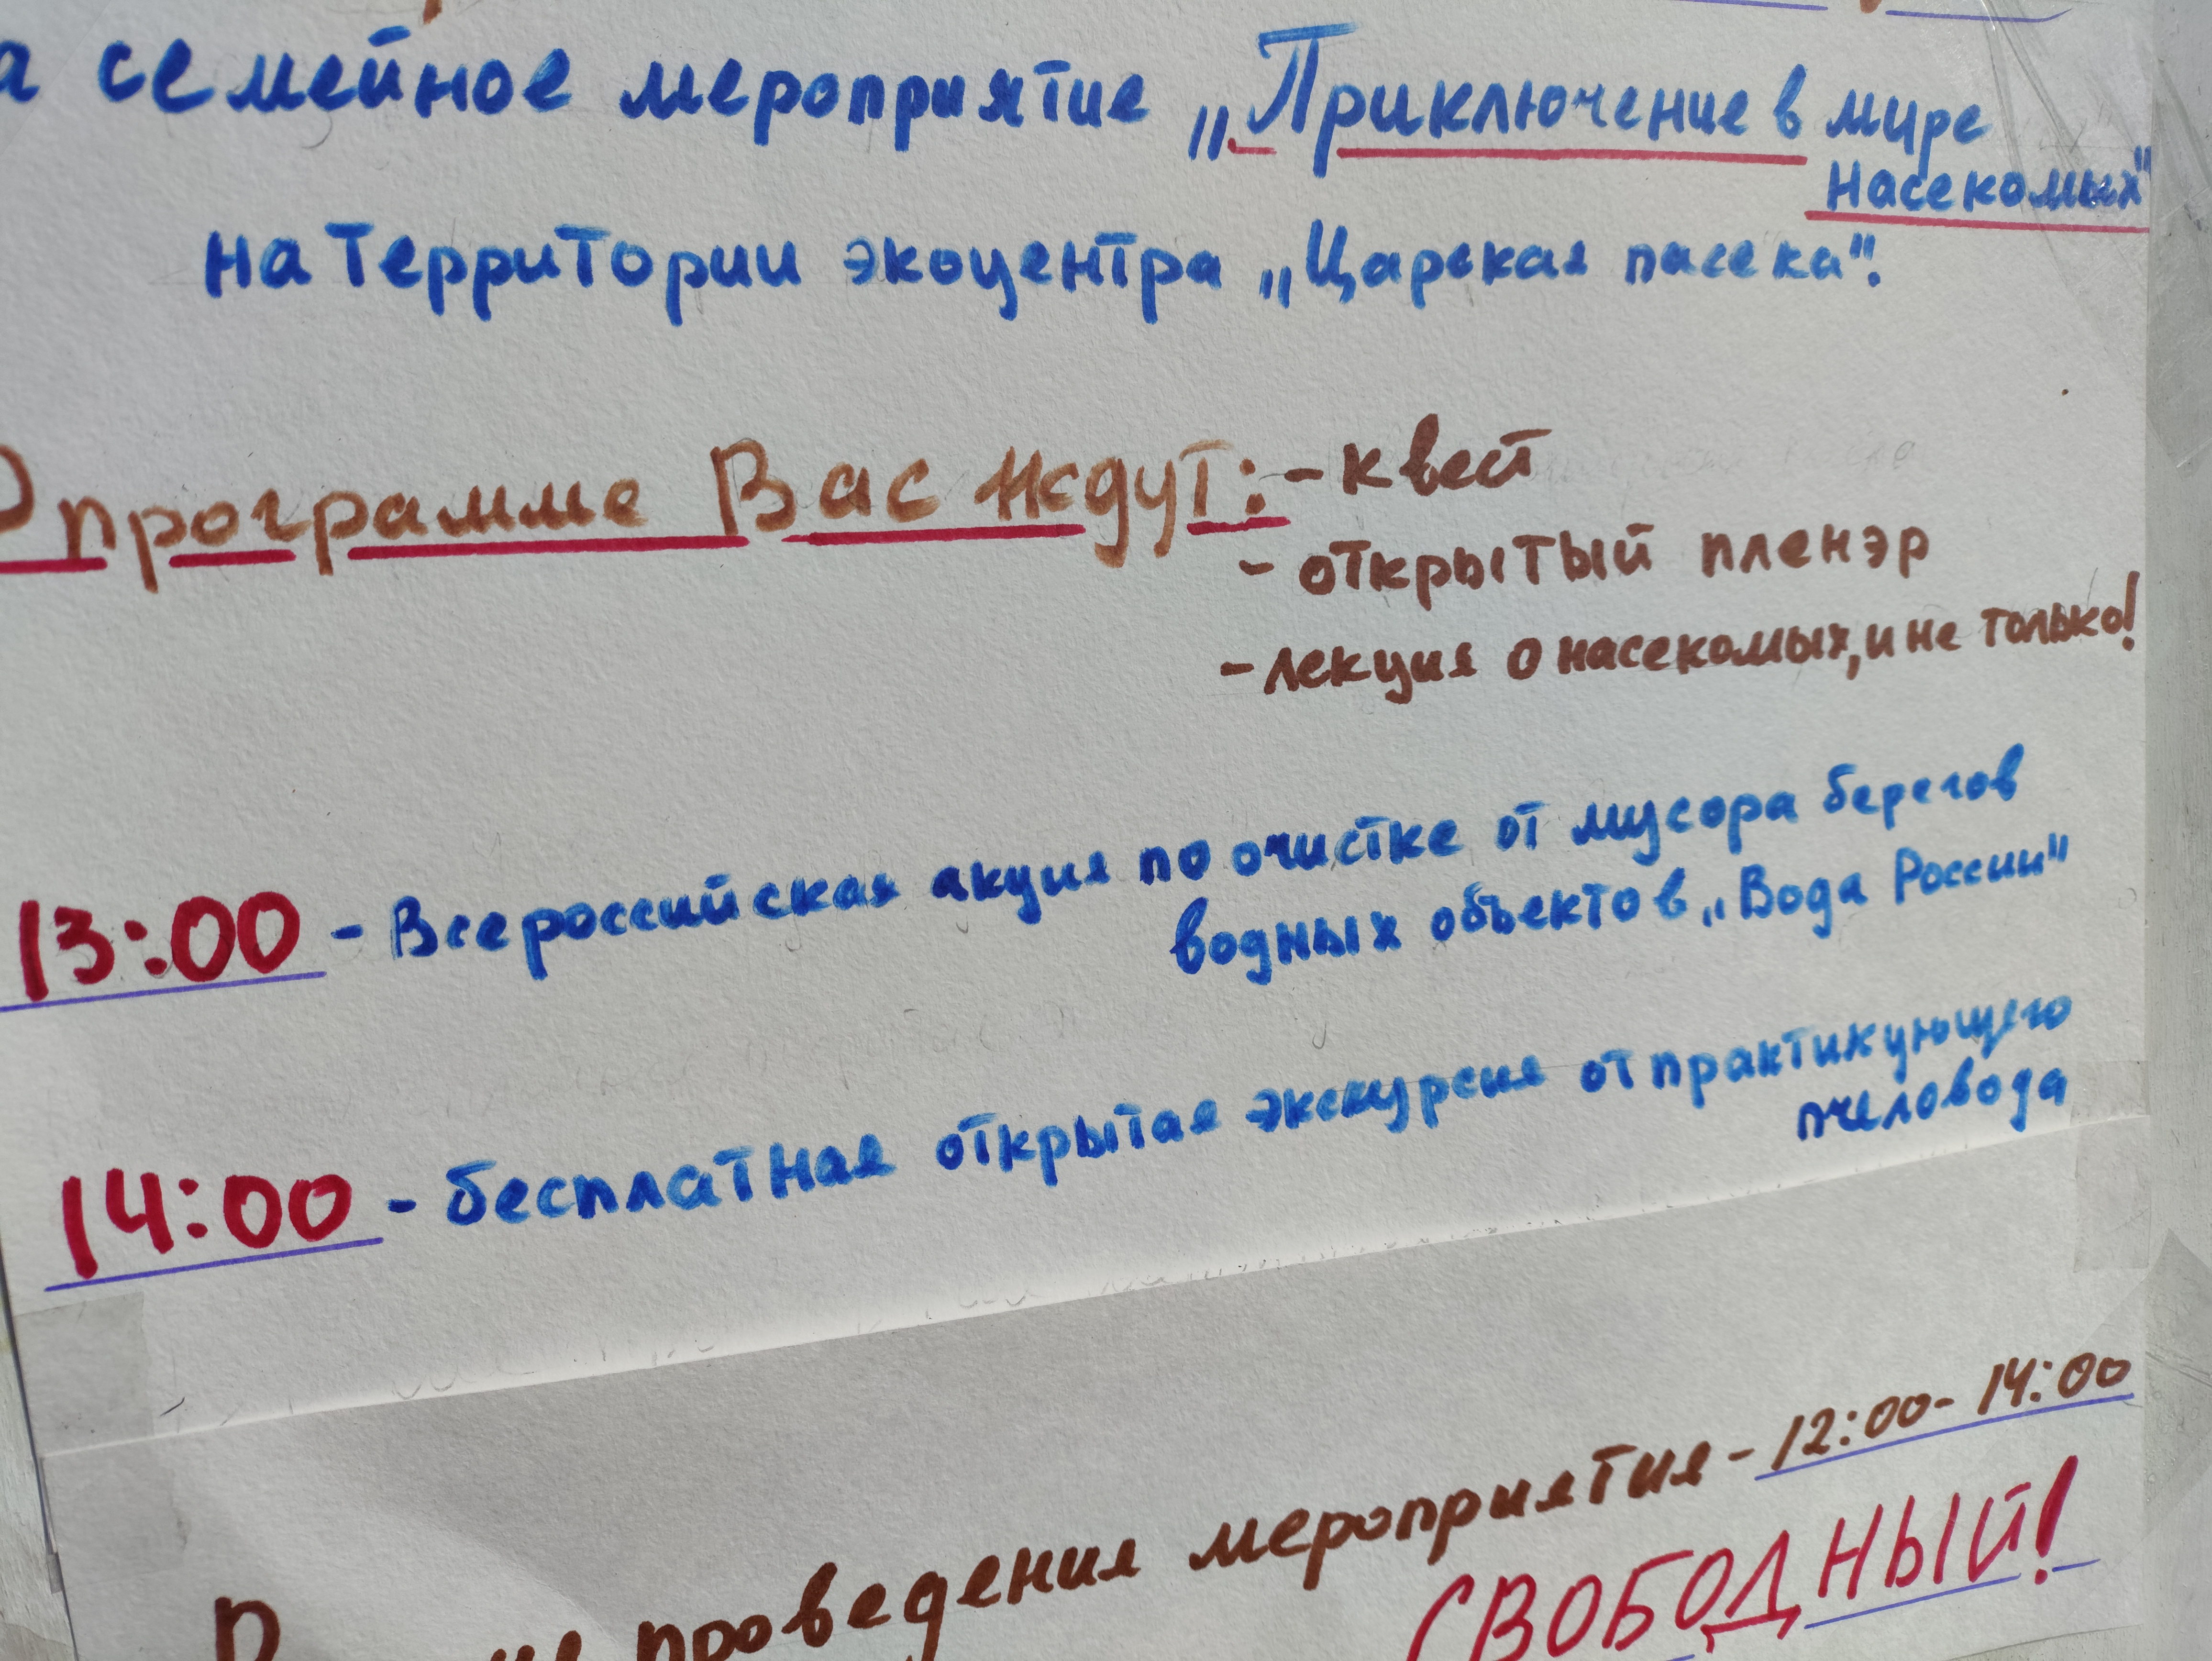 а семейное мероприятие „Приключение в мире
насекомых"
на территории экоцентра „Царская пасека".
программе Вас ждут: - квест
- открытый пленэр
- лекция о насекомых, и не только!
13:00 - Всероссийская акция по очистке от мусора берегов
водных объектов „Вода России"
14:00 - бесплатная открытая экскурсия от практикующего
пчеловода
проведения мероприятия - 12:00 - 14:00
СВОБОДНЫЙ!